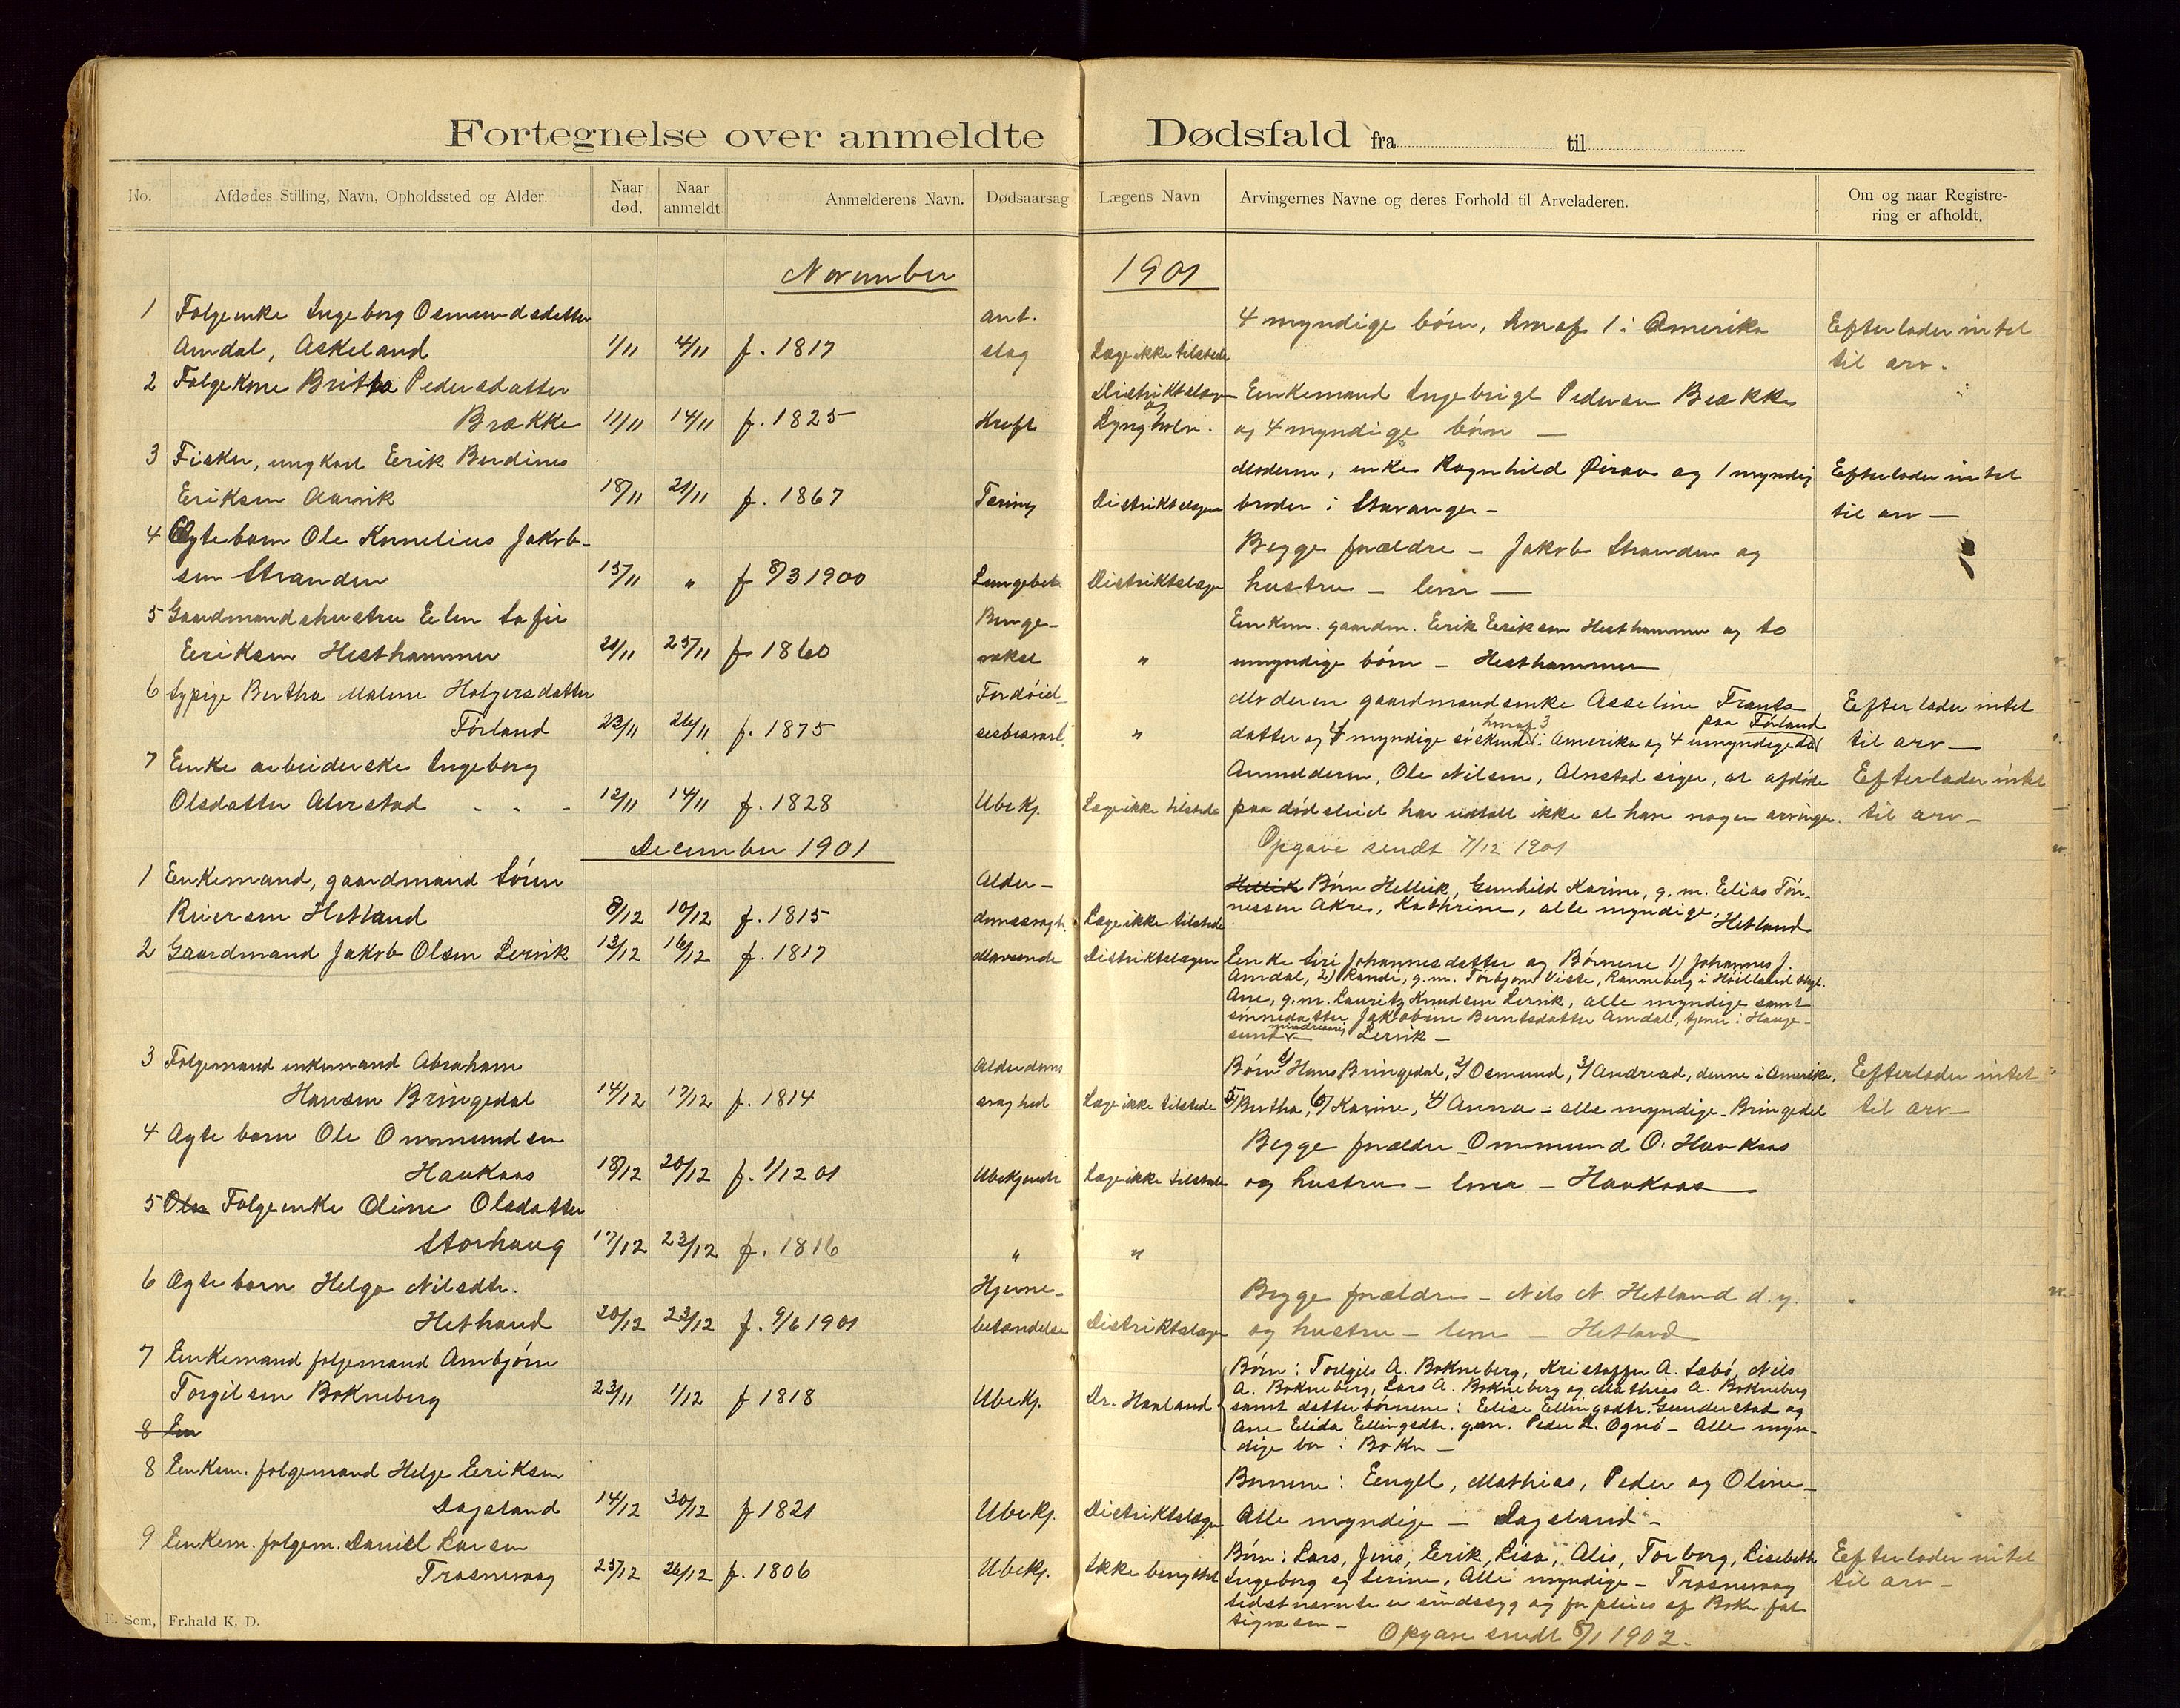 Fortegnelse over anmeldte Dødsfald fra til
No. Afdødes Stilling, Navn, Opholdssted og Alder. Naar død. Naar anmeldt Anmelderens Navn. Dødsaarsag Lægens Navn Arvingernes Navne og deres Forhold til Arveladeren. Om og naar Registrering er afholdt.
November 1901
1 Folgeenke Ingeborg Osmundsdatter ant. 4 myndige børn, hvoraf 1 i Amerika Efterlader intet
Amdal, Askeland 1/11 4/11 f. 1817 slag Læge ikke tilstede til arv.
2 Folgekone Britta Pedersdatter Distriktslægen og Enkemand Ingebrigt Pedersen Brække
Brække 11/11 14/11 f. 1825 Kreft Lyngholm. og 4 myndige børn —
3 Fisker, ungkarl Eerik Berdines Moderen, enke Ragnhild og 1 myndig Efterlader intet
Eeriksen Aarvik 18/11 21/11 f. 1867 Tæring Distriktslægen broder i Stavanger - til arv —
4 Ægtebarn Ole Kornelius Jakob- Begge forældre - Jakob Stranden og
sen Stranden 15/11 " f 8/3 1900 Lungebet. Distriktslægen hustru - lever —
5 Gaardmandshustru Elen Sofie Benge- Enkem. gaardm. Eerik Eeriksen Hesthammer og to
Eeriksen Hesthammer 21/11 25/11 f 1860 " umyndige børn - Hesthammer
6 Sypige Bertha Malene Holgersdatter Fordøiel- Moderen gaardmandsenke Asseline Frants Efterlader intet
Førland 23/11 26/11 f. 1875 sesbesværl. " datter og 4 myndige søskend hvoraf 3 i Amerika og 4 umyndige do paa Førland til arv —
7 Enke arbeiderske Ingeborg Anmelderen, Ole Nilsen, Alvestad siger, at afdøde Efterlader intet
Olsdatter Alvestad - - - 12/11 14/11 f. 1828 Ubekj. Læge ikke tilstede paa dødsleiet har udtalt ikke at have nogen arvinger. til arv -
Opgave sendt 7/12 1901
December 1901
1 Enkemand, gaardmand Sören Alder- Hellik Børn Hellik, Gunhild Karine, g.m. Elias Tön-
Reiersen Hetland 8/12 10/12 f. 1815 domssvagh. Læge ikke tilstede nessen Akre, Kathrine, alle myndige, Hetland
2 Gaardmand Jakob Olsen Lervik 13/12 16/12 f. 1817 Mavsonde Distriktslægen Enke Siri Johannesdatter og Børnene 1) Johannes J.
Amdal, 2) Randi, g.m. Torbjørn Viste, Ranneberg i Høiland
Ane, g.m. Lauritz Knudsen Lervik, alle myndige samt
sønnedatter Jakobine Berntsdatter Amdal, tjener i Hauge-
sund mindreaarig Lervik -
3 Folgemand enkemand Abraham Alderdoms Børn 1/ Hans Bringedal, 2/ Osmund, 3/ Andread, denne i Amerika, Efterlader intet
Hansen Bringedal 14/12 17/12 f. 1814 svaghed Læge ikke tilstede 5/ Bertha, 6/ Karine, 4/ Anna - alle myndige - Bringedal til arv -
4 Ægte barn Ole Ommundsen Begge forældre - Ommund O. Haukaas
Haukaas 18/12 20/12 f. 1/12 01 Ubekjendt Læge ikke tilstede og hustru - lever - Haukaas
5 Olin Folgeenke Oline Olsdatter
Storhaug 17/12 23/12 f. 1816 " "
6 Ægtebarn Helga Nilsdtr. Hjerne- Begge forældre - Nils N. Hetland d.y.
Hethand 20/12 23/12 f. 9/6 1901 betændelse Distriktslægen og hustru - lever - Hetland
7 Enkemand folgemand Arnbjørn Børn: Torkjils A. Bokneberg, Kristoffer A. Sæbø, Nils
Torgilsen Bokneberg 23/11 1/12 f 1818 Ubekj. Dr. Haaland A. Bokneberg, Lars A. Bokneberg og Mathias A. Bokneberg
samt datterbørnene: Elise Ellingsdtr. Gunderstad og
Ane Elida Ellingsdtr. g.m. Peder L. Ognø - Alle myn-
dige bor i Bokn -
8 En
8 Enkem. folgemand Helge Eeriksen Børnene: Engel, Mathias, Peder og Oline -
Dagsland 14/12 30/12 f 1821 Ubekj. Distriktslægen Alle myndige - Dagsland -
9 Enkem. folgem. Daniel Larsen Børn: Lars, Jens, Erik, Lisa, Alis, Torborg, Lisebeth Efterlader intet
Trosnevaag 25/12 26/12 f. 1806 Ubekj. Ikke benyttet Ingeborg og Serine, Alle myndige - Trosnevaag til arv -
sidstnævnte er sindssyg og forpleies af Bokn fat
tigvæsen -
Opgave sendt 8/1 1902.
E. Sem, Fr.hald K. D.